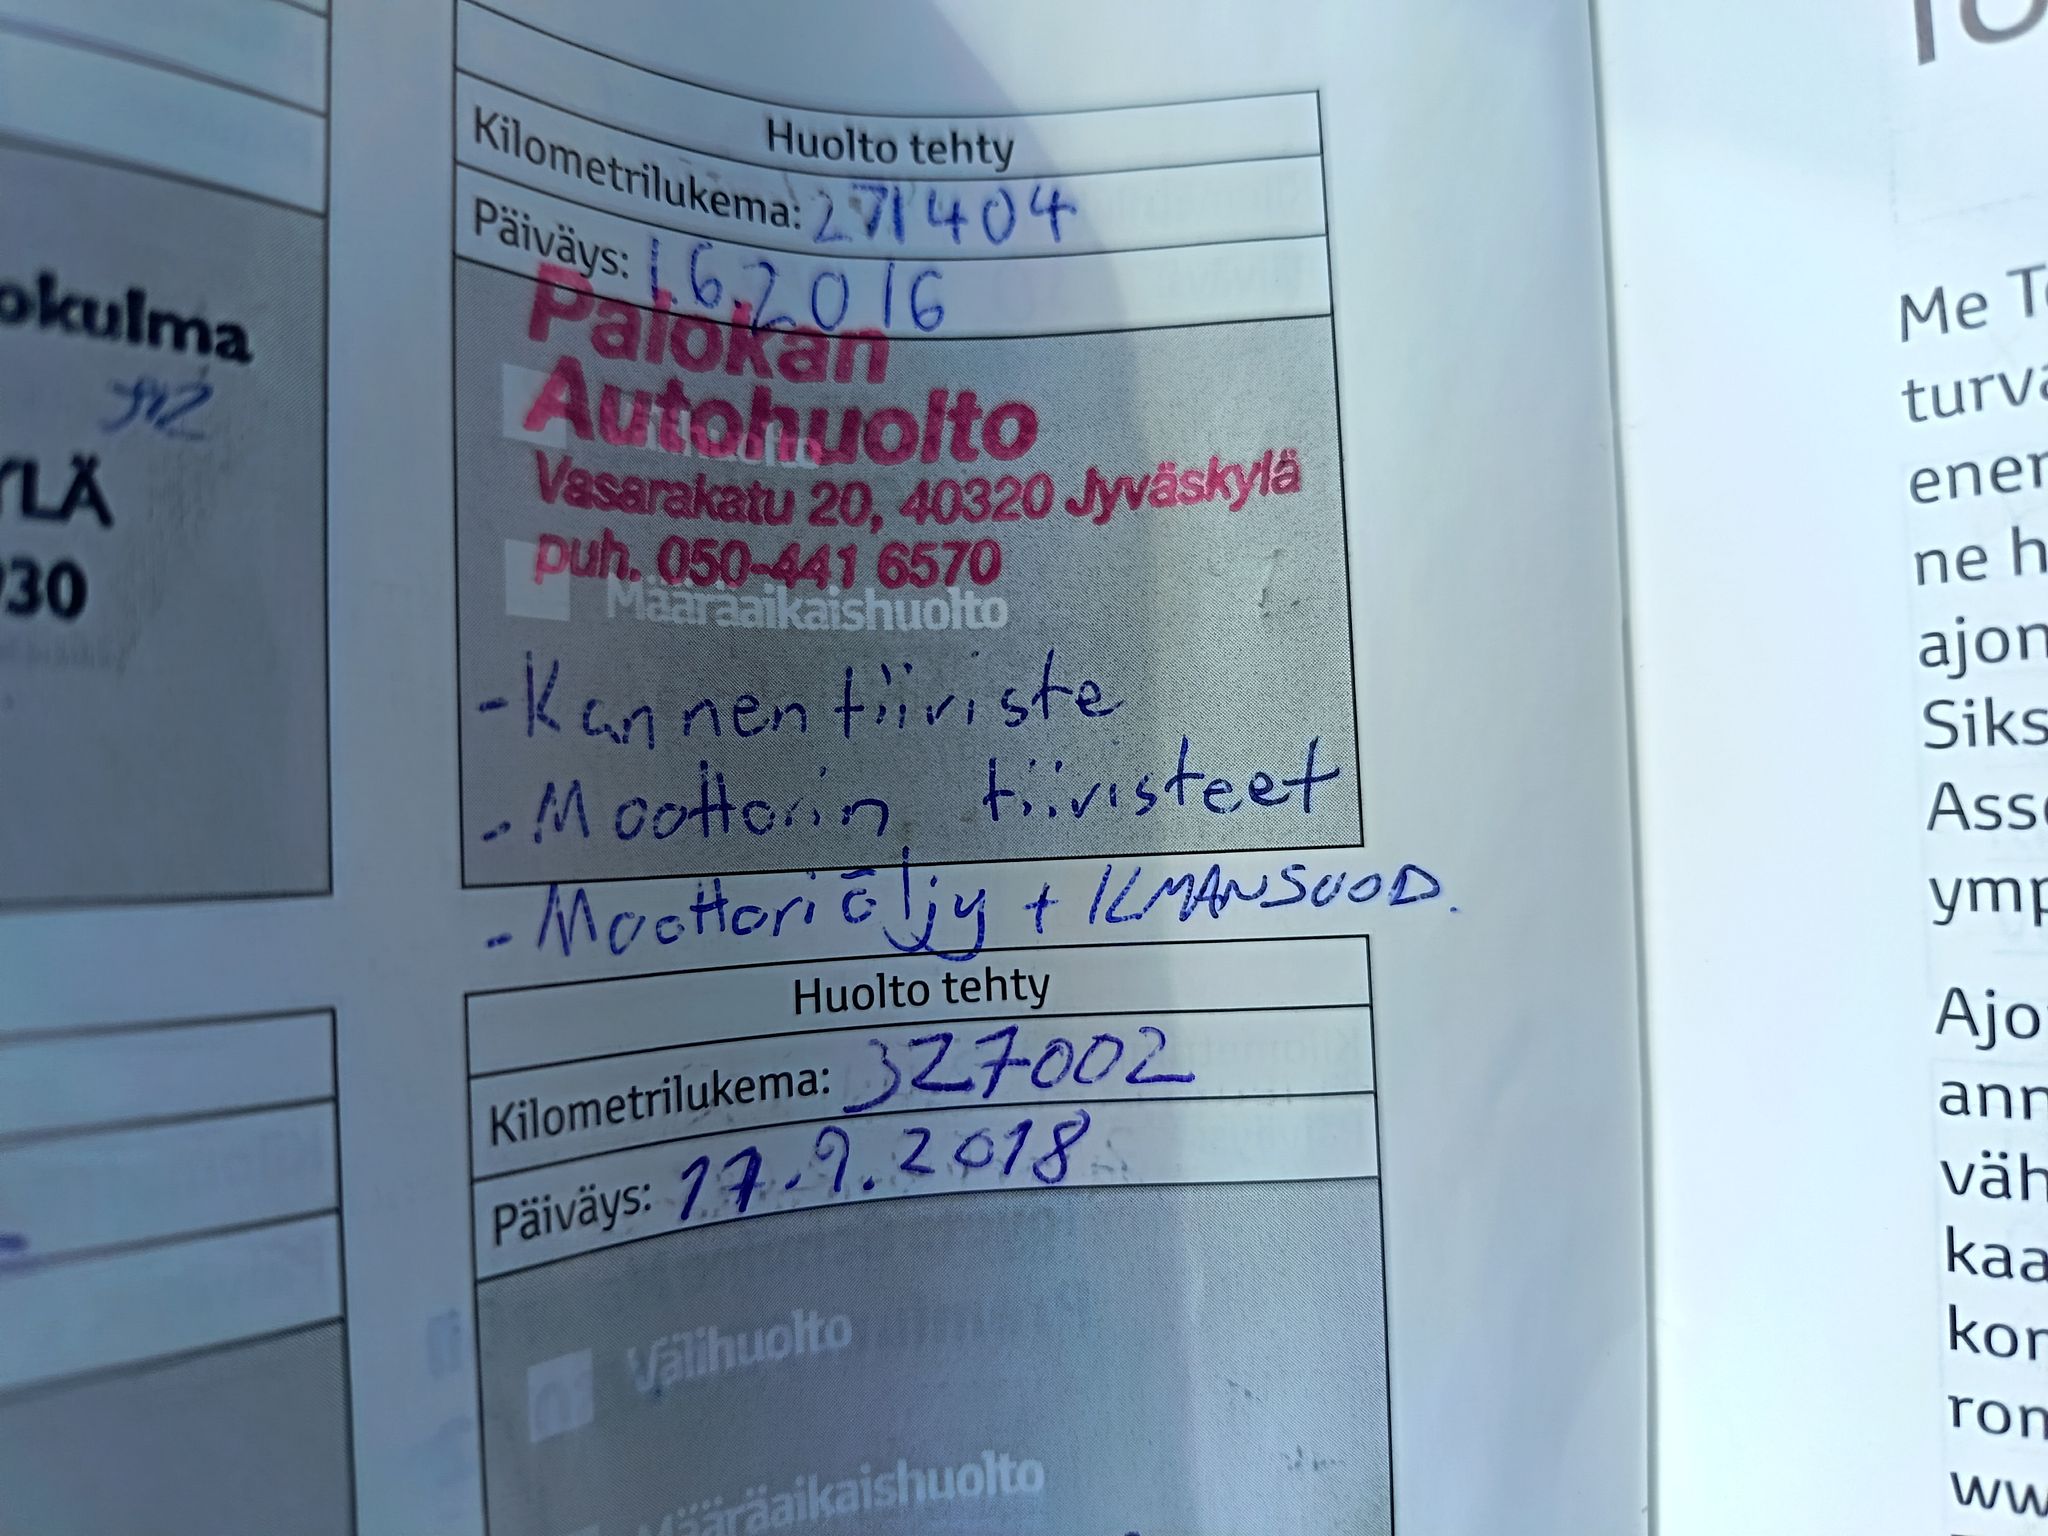 okulma
YLÄ
930
Huolto tehty
Kilometrilukema: 271404
Päiväys: 1.6.2016
Palokan
Autohuolto
Vasarakatu 20, 40320 Jyväskylä
puh. 050-441 6570
Määräaikaishuolto
- Kannentiiviste
- Moottorin tiivisteet
- Moottoriöljy + ILMANSUOD.
Huolto tehty
Kilometrilukema: 327002
Päiväys: 17.9.2018
Välihuolto
Määräaikaishuolto
Me T
turva
ener
ne h
ajon
Siks
Asse
ymp
Ajo
ann
väh
kaa
kon
ron
ww